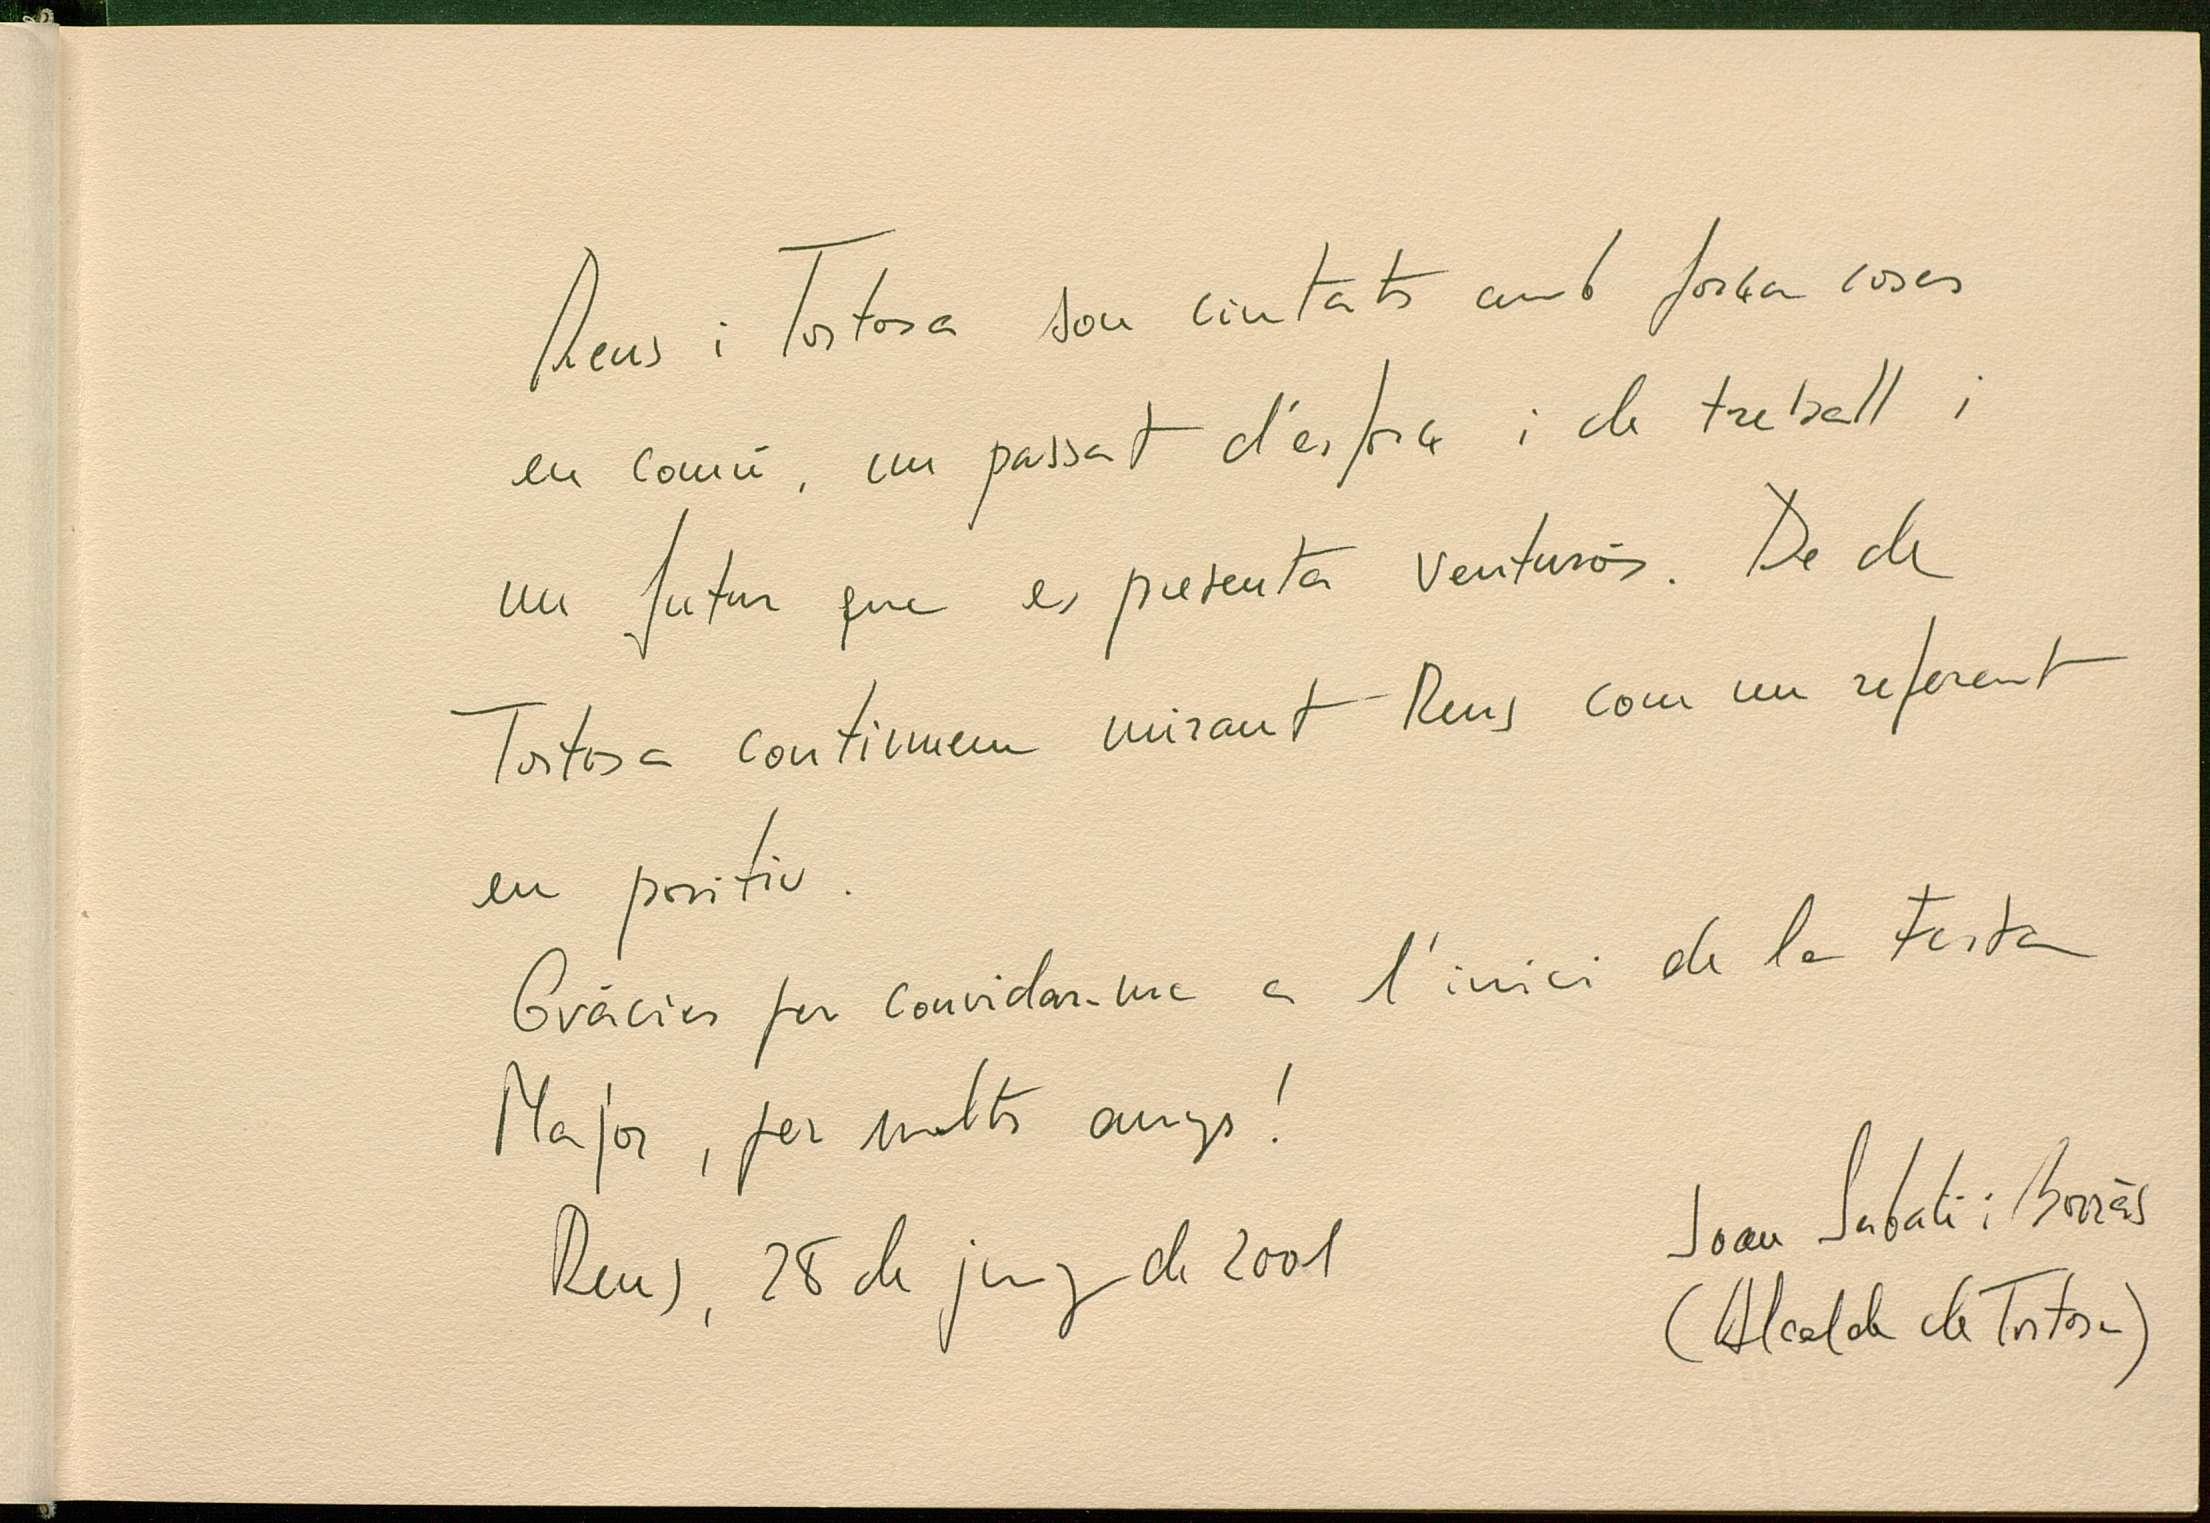 Reus i Tortosa son ciutats amb força coses
en comú, un passat d'esforç i de treball i
un futur que es presenta venturós. De de
Tortosa continuem mirant Reus com un referent
en positiu.
Gràcies per convidar-me a l'inici de la Festa
Major, per molts anys!
Reus, 28 de juny de 2001
Joan Sabaté i Borràs
(Alcalde de Tortosa)